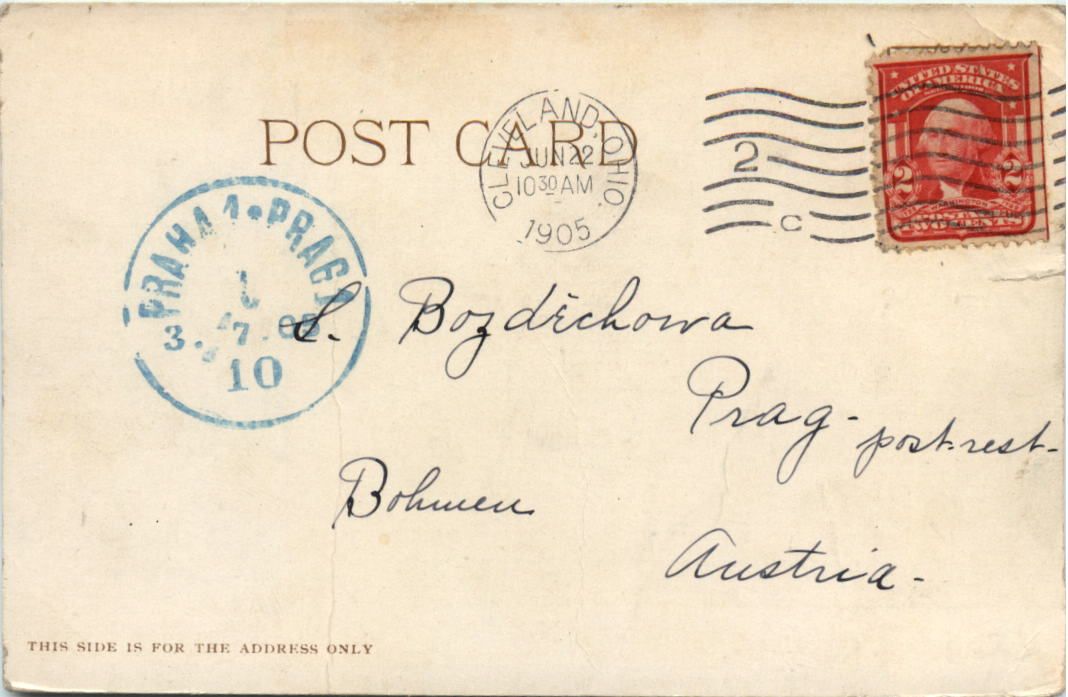 POST CARD
CLEVELAND, OHIO.
JUN 22
10 30 AM
1905
2
C
UNITED STATES
OF AMERICA
2 2
WASHINGTON
TWO CENTS
PRAHA 1 • PRAG 1
3. 7. 05
10
S. Bozděchowa
Prag - post-rest-
Bohmen
Austria -
THIS SIDE IS FOR THE ADDRESS ONLY